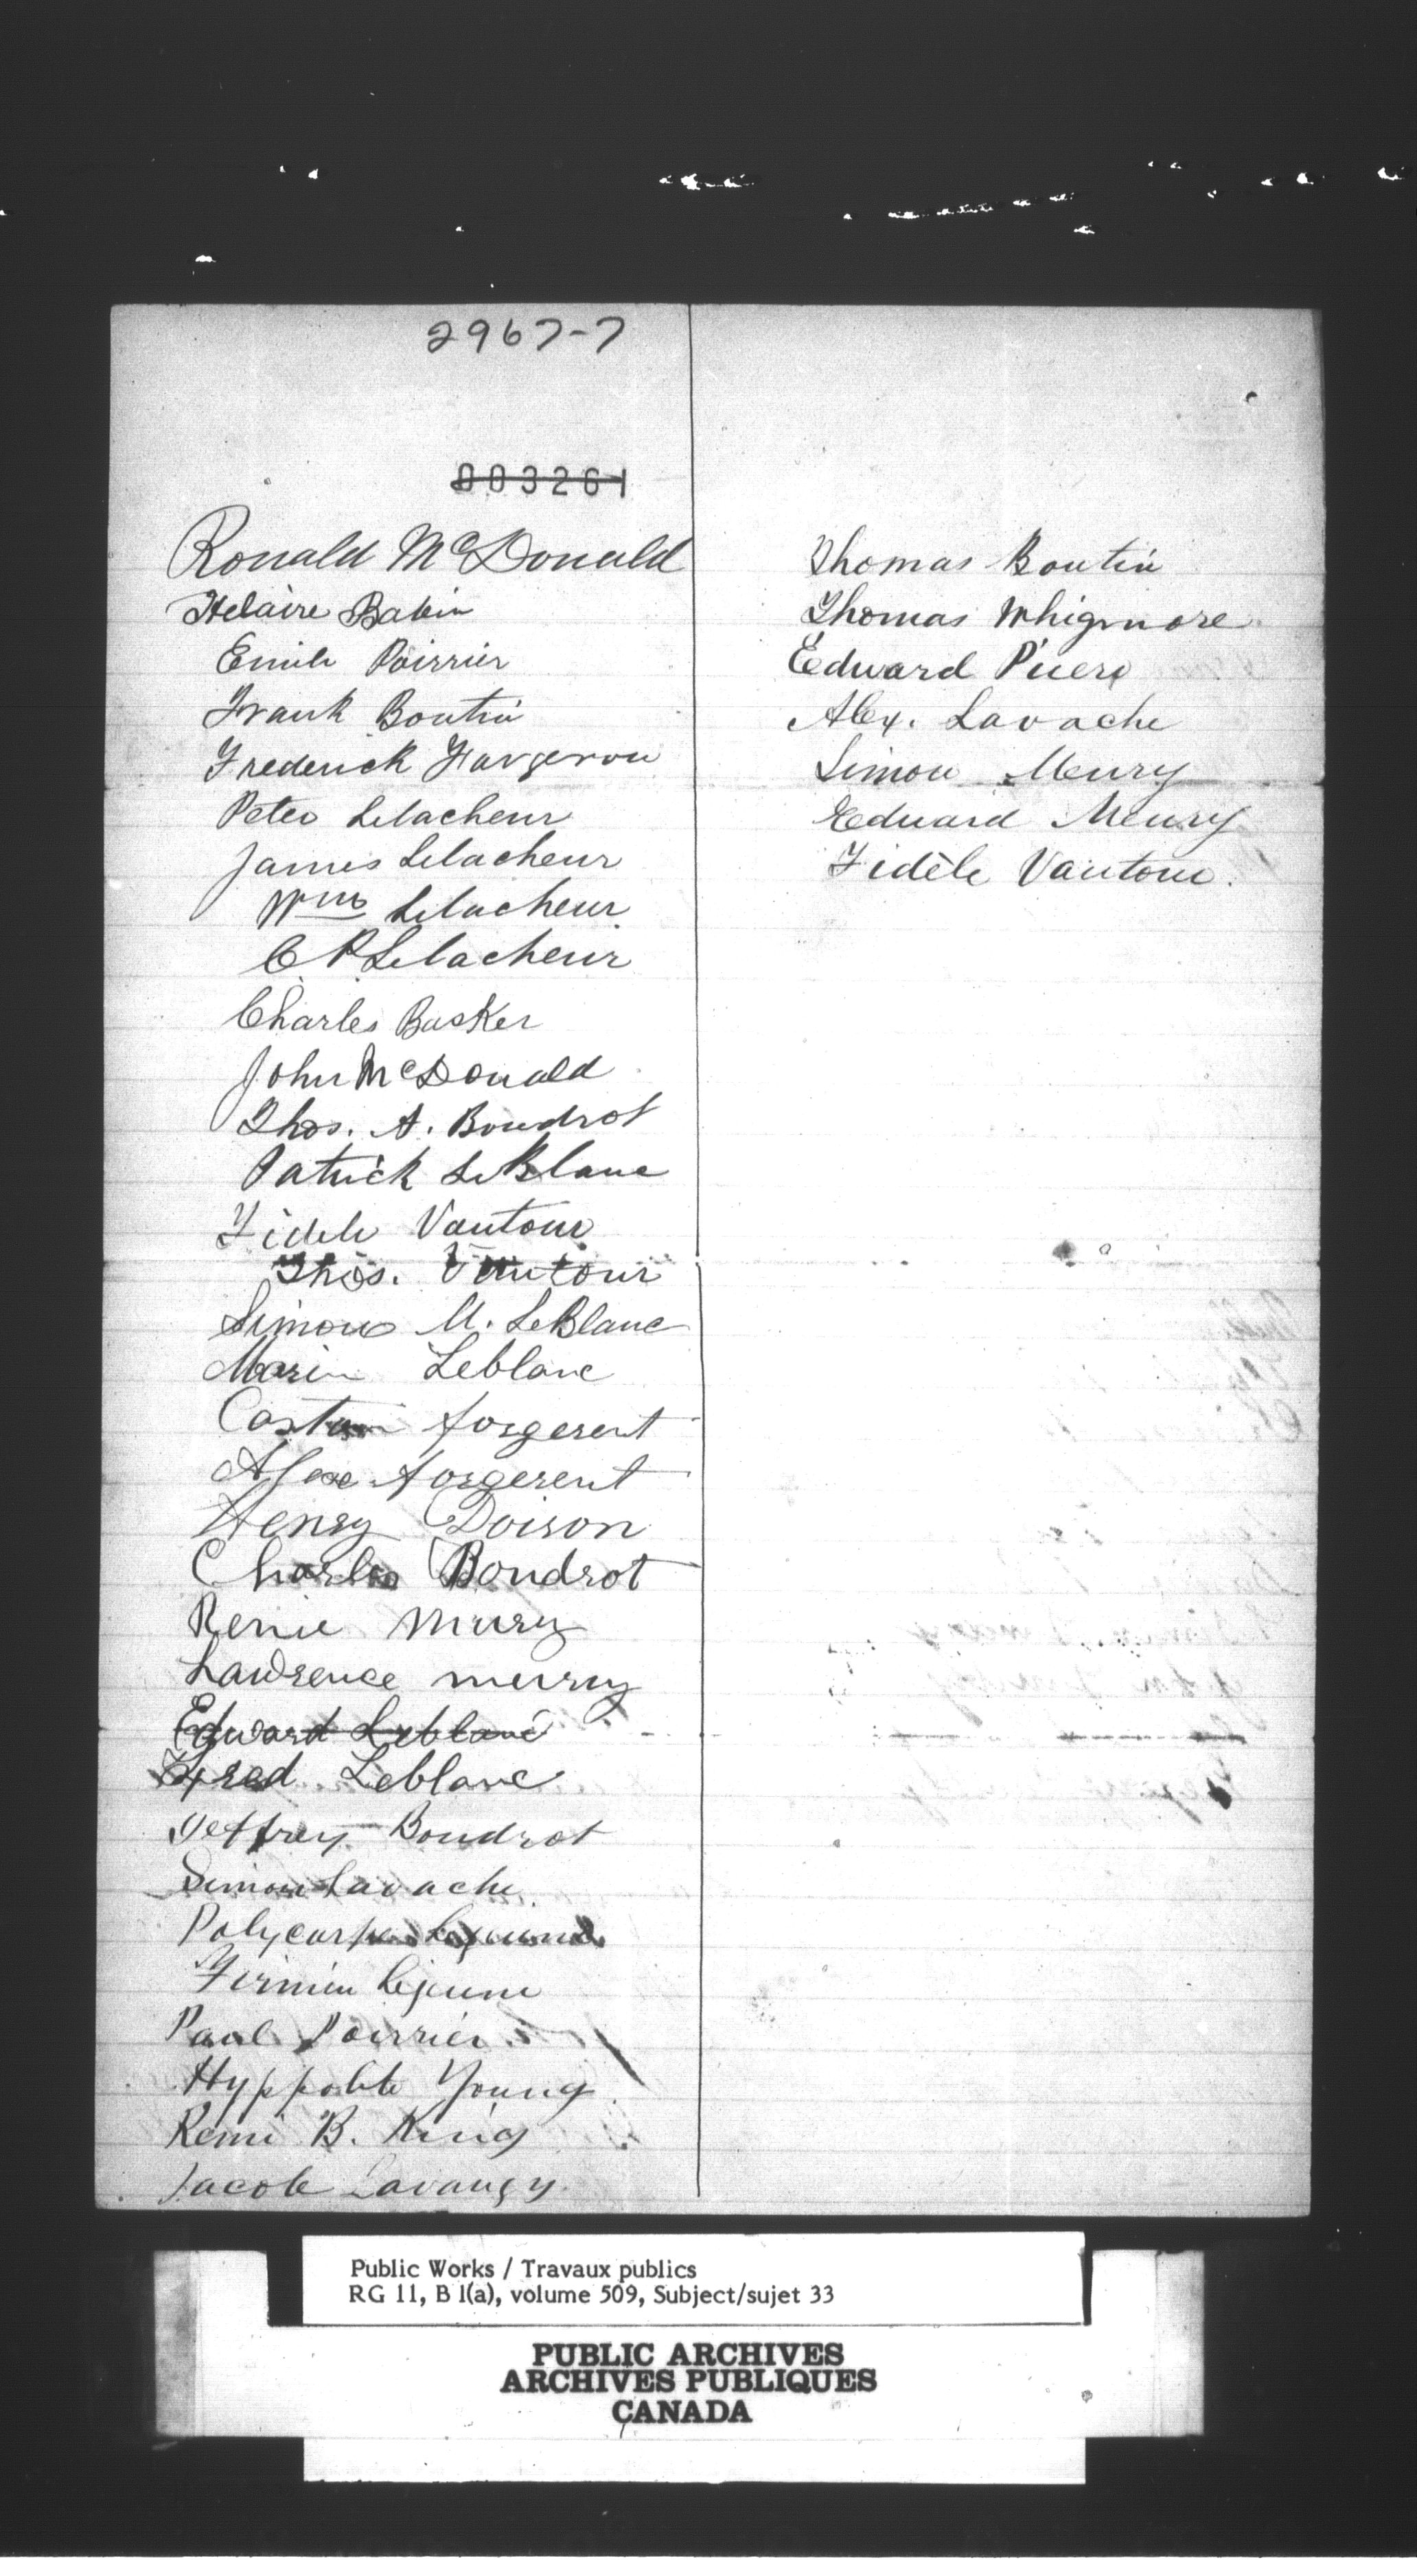 2967-7
003261
Ronald McDonald
Helaire Babin
Emile Poirrier
Frank Boutin
Frederick Fargeron
Peter Lelacheur
James Lelacheur
Wm Lelacheur
C P Lelacheur
Charles Basker
John McDonald
Thos. A. Boudrot
Patrick LeBlanc
Fidele Vautour
Thos. Vautour
Simon M. LeBlanc
Marin Leblanc
forgerent
Alex forgerent
Henry Poison
Charles Boudrot
Renie Mury
Lawrence mury
Edward Leblanc
Fred Leblanc
Jeffrey Boudrot
Simon Lavache
Polycarpe Lejeune
Firmin Lejeune
Paul Poirrier
Hyppolite Young
Remi B. King
Jacob
Thomas Boutin
Thomas Whigmore
Edward
Alex. Lavache
Simon Meury
Edward Meury
Fidèle Vautour.
Public Works / Travaux publics
RG 11, B 1(a), volume 509, Subject/sujet 33
PUBLIC ARCHIVES
ARCHIVES PUBLIQUES
CANADA